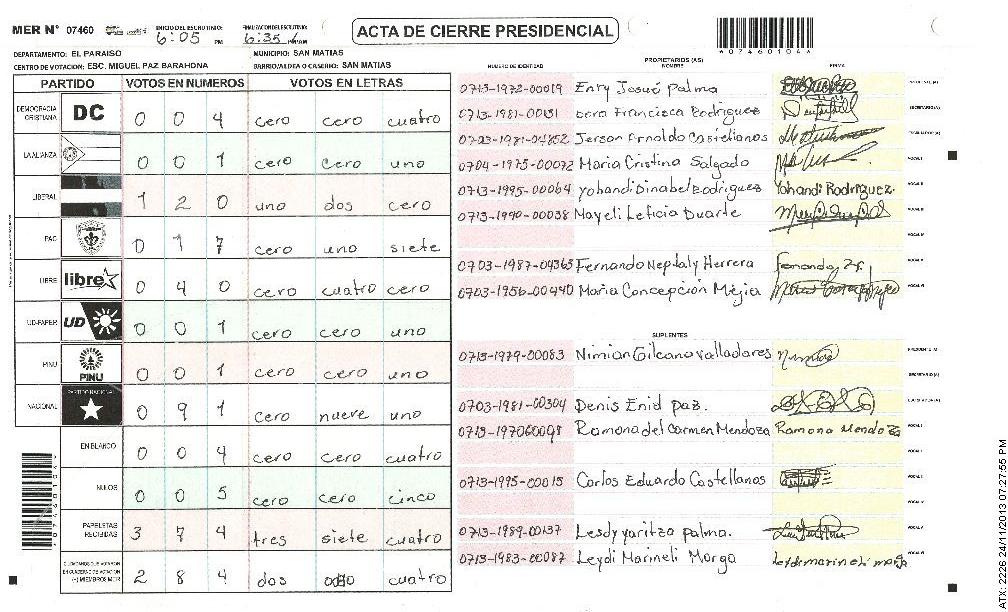 MER N° 07460 INICIO DEL ESCRUTINIO: 6:05 PM FINALIZACION DEL ESCRUTINIO: 6:35 PM
ACTA DE CIERRE PRESIDENCIAL
A07460104A
DEPARTAMENTO: EL PARAISO MUNICIPIO: SAN MATIAS
CENTRO DE VOTACION: ESC. MIGUEL PAZ BARAHONA BARRIO/ALDEA O CASERIO: SAN MATIAS
PARTIDO VOTOS EN NUMEROS VOTOS EN LETRAS
DEMOCRACIA CRISTIANA DC 0 0 4 cero cero cuatro
LA ALIANZA 0 0 1 cero cero uno
LIBERAL 1 2 0 uno dos cero
PAC 0 1 7 cero uno siete
LIBRE libre 0 4 0 cero cuatro cero
UD-FAPER UD 0 0 1 cero cero uno
PINU PINU 0 0 1 cero cero uno
NACIONAL PARTIDO NACIONAL 0 9 1 cero nueve uno
EN BLANCO 0 0 4 cero cero cuatro
NULOS 0 0 5 cero cero cinco
PAPELETAS RECIBIDAS 3 7 4 tres siete cuatro
CIUDADANOS QUE VOTARON EN CUADERNO DE VOTACION (+) MIEMBROS MER 2 8 4 dos ocho cuatro
PROPIETARIOS (AS)
NUMERO DE IDENTIDAD NOMBRE FIRMA
0713-1972-00019 Enry Josué palma
0713-1981-00131 Dora Francisca Rodriguez
0703-1981-04852 Jerson Arnoldo Castellanos
0704-1975-00072 Maria Cristina Salgado
0713-1995-00064 yohandi Dinabel Rodriguez Yohandi Rodriguez.
0713-1990-00038 Mayeli Leticia Duarte
0703-1987-04365 Fernando Neptaly Herrera
0703-1956-00440 Maria Concepción Mejia
SUPLENTES
0713-1979-00083 Nimian Gilcano Valladares
0703-1981-00304 Denis Enid paz.
0713-197060098 Ramona del Carmen Mendoza Ramona Mendoza
0713-1995-00015 Carlos Eduardo Castellanos
0713-1989-00137 Lesdy yaritza palma.
0713-1983-00087 Leydi Marineli Morga leydi marineli morga
ATX: 2226 24/11/2013 07:27:55 PM